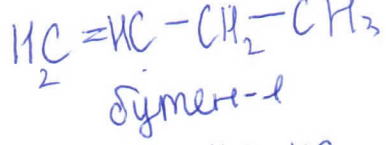 H₂C=HC-CH₂-CH₃
бутен-1